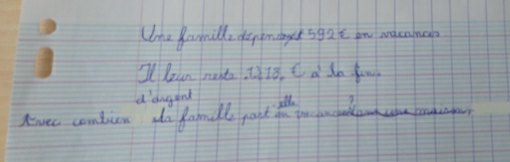 Une famille dépensent 592 € en vacances
Il leur reste 1213, € à la fin.
d'argent
Avec combien la famille part elle en vacances ?